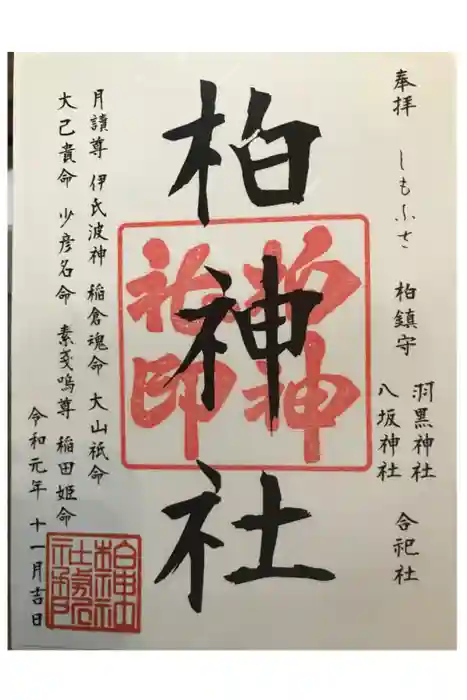 奉拝 しもふさ 柏鎮守
羽黒神社
八坂神社
合祀社
柏神社
柏神
社印
月讀尊 伊氐波神 稲倉魂命 大山祇命
大己貴命 少彦名命 素戔嗚尊 稲田姫命
令和元年 十一月吉日